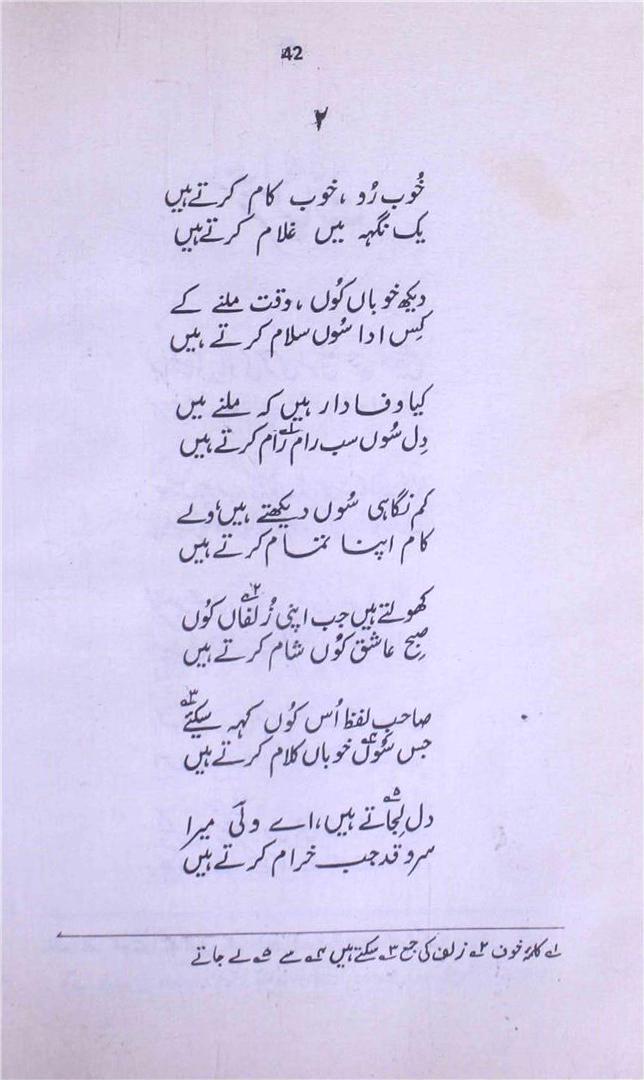 42
۲
خُوب رُو ، خوب کام کرتے ہیں
یک نگہہ میں غلام کرتے ہیں
دیکھ خوباں کُوں ، وقت ملنے کے
کِس ادا سُوں سلام کرتے ہیں
کیا وفادار ہیں کہ ملنے میں
دِل سُوں سب رام رَام۱ کرتے ہیں
کم نگاہی سُوں دیکھتے ہیں، ولے
کام اپنا تمام کرتے ہیں
کھولتے ہیں جب اپنی زُلفاں۲ کُوں
صبحِ عاشق کُوں شام کرتے ہیں
صاحبِ لفظ اُس کُوں کہہ سکیئے۳
جس سُوں۴ خوباں کلام کرتے ہیں
دل لِجاتے۵ ہیں، اے ولیؔ میرا
سرو قد جب خرام کرتے ہیں
۱ کلمۂ خوف ۲ زلف کی جمع ۳ سکتے ہیں ۴ سے ۵ لے جاتے